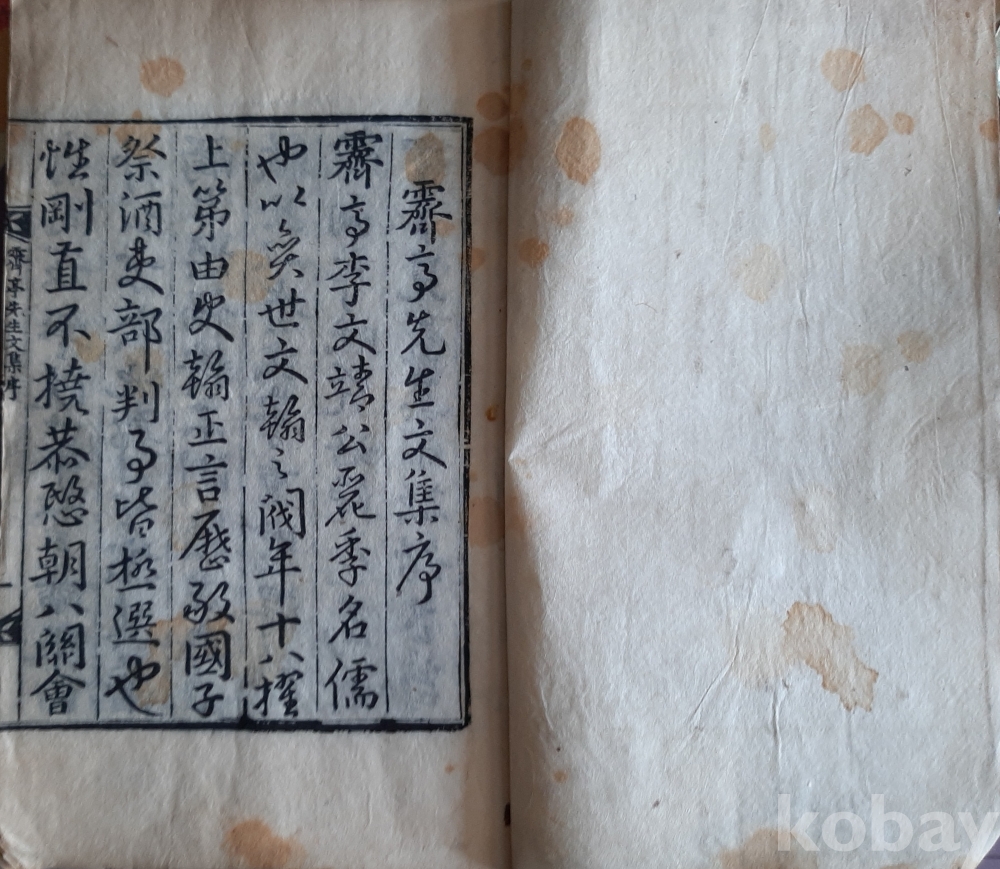 霽亭先生文集序
霽亭李文靖公麗季名儒
也以奕世文翰之閥年十八擢
上第由史翰正言歷敭國子
祭酒吏部判事皆極選也
性剛直不撓恭愍朝八關會
霽亭先生文集序
kobay